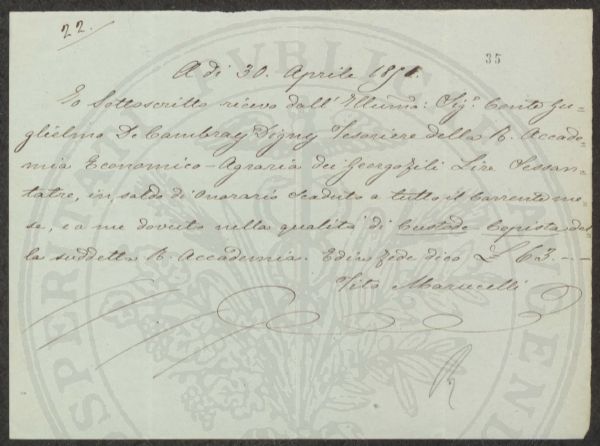 22.
35
A dì 30. Aprile 1851.
Io Sottoscritto ricevo dall' Illumo: Sigr. Conte Gu=
glielmo De Cambray Digny Tesoriere della R. Accade=
mia Economico-Agraria dei Georgofili Lire Sessan=
tatre, in saldo di Onorario Scaduto a tutto il Corrente me=
se, e a me dovuto nella qualità di Custode Copista del=
la suddetta R. Accademia. Ed in fede dico £ 63. - -
Tito Marucelli
PROSPERITATI PUBLICAE AUGENDAE